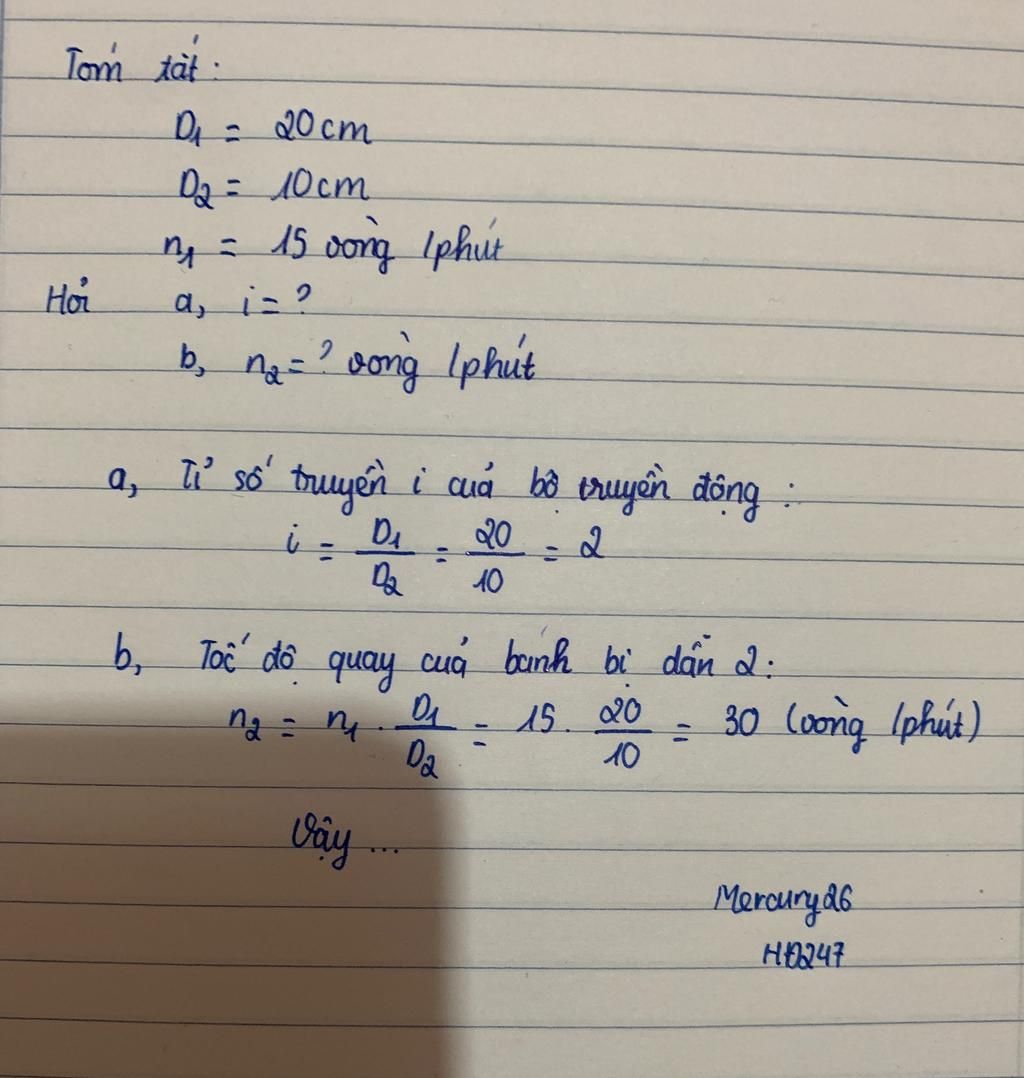 Tóm tắt:
D1 = 20cm
D2 = 10cm
n1 = 15 vòng /phút
Hỏi a, i = ?
b, n2 = ? vòng /phút
a, Tỉ số truyền i của bộ truyền động :
i = D1/D2 = 20/10 = 2
b, Tốc độ quay của bánh bị dẫn 2:
n2 = n1 . D1/D2 = 15 . 20/10 = 30 (vòng /phút)
Vậy ...
Mercury26
HĐ247